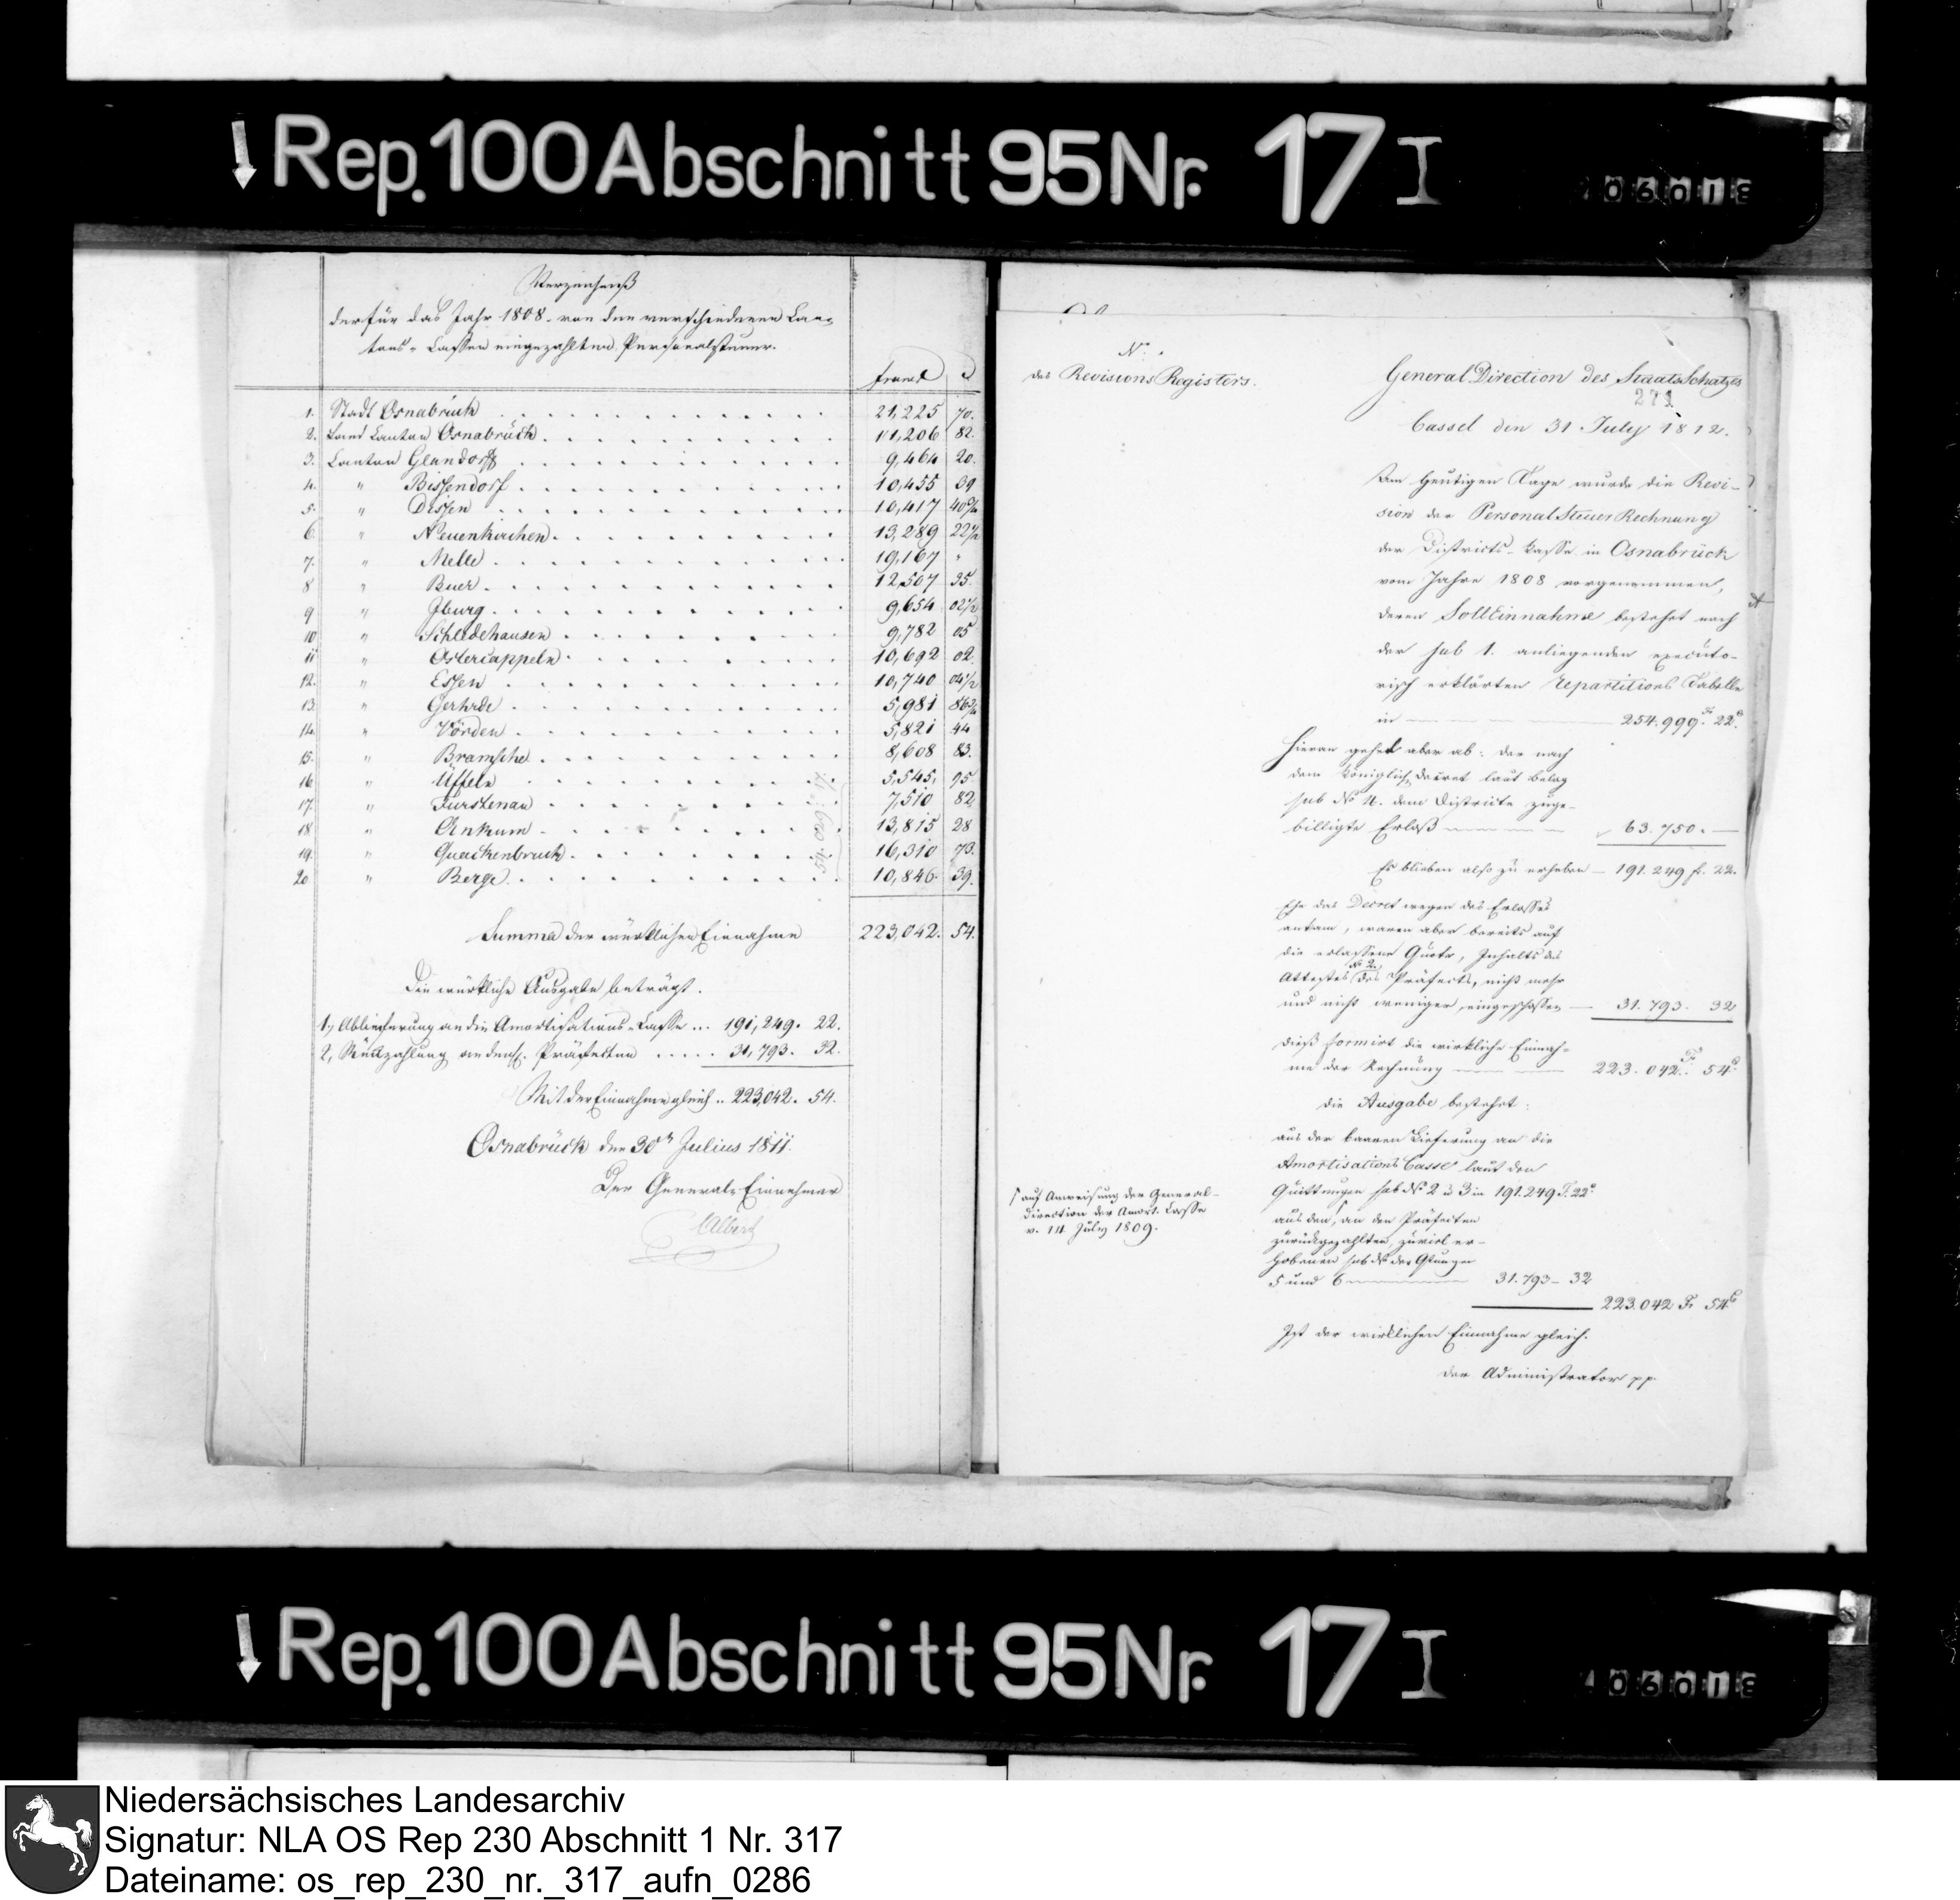 Rep. 100 Abschnitt 95 Nr. 17 I
Verzeichniß
der für das Jahr 1808. von den verschiedenen Can-
tons-Cassen eingezahlten Personalsteuer.
Francs C
1. Stadt Osnabrück 21,225 70.
2. Land Canton Osnabrück 11,206 82.
3. Canton Glandorff 9,464 20.
4. " Bissendorf 10,455 39
5. " Dissen 10,417 40 3/4
6. " Neuenkirchen 13,289 22 1/2
7. " Melle 19,167 "
8 " Buer 12,507 35.
9 " Iburg 9,654 02 1/2
10 " Schledehausen 9,782 05
11 " Ostercappeln 10,692 02.
12. " Essen 10,740 04 1/2
13. " Gehrde 5,981 86 3/4
14. " Vörden 5,821 44
15. " Bramsche 8,608 83.
16 " Üffeln 5,545, 95
17. " Fürstenau 7,510 82
18 " Ankum 13,815 28
19. " Quackenbrück 16,310 73.
20 " Berge 10,846. 39.
Summa der würklichen Einnahme 223,042. 54.
Die würkliche Ausgabe beträgt.
1, Ablieferung an die Amortisations-Casse ... 191,249. 22.
2, Rückzahlung an den H. Präfecten ..... 31,793. 32.
Mit der Einnahme gleich .. 223,042. 54.
Osnabrück den 30n Julius 1811.
Der General-Einnehmer
Albert
No.
des Revisions Registers.
General Direction des Staats Schatzes
271
Cassel den 31 July 1812.
Am heutigen Tage wurde die Revi-
sion der Personal Steuer Rechnung
der Districts-Casse in Osnabrück
vom Jahre 1808 vorgenommen,
deren Soll Einnahme bestehet nach
der sub 1. anliegenden executo-
risch erklärten repartitions Tabelle
in 254.999 Fr. 22 c.
Hievon gehet aber ab: der nach
dem Königlich. Decret laut Belag
sub No 4. dem Districte zuge-
billigte Erlaß 63.750. —
Es blieben also zu erheben — 191.249 f. 22.
Ehe das Decret wegen des Erlasses
ankam, waren aber bereits auf
die erlassene Quote, Inhalts des
Attestes No 2. des Präfects, nicht mehr
und nicht weniger eingeschossen — 31.793. 32
Dieß formirt die wirkliche Einnah-
me der Rechnung 223.042 Fr. 54 c.
Die Ausgabe bestehet:
aus der baaren Lieferung an die
Amortisations Casse laut den
Quittungen sub No 2 u 3 in 191.249 F. 22 c
aus den, an den Präfecten
zurückgezahlten, zuviel er-
hobenen sub No der
5 und 6 31.793 – 32
223.042 Fr 54 c
Ist der wirklichen Einnahme gleich.
Der Administrator pp.
auf Anweisung der General-
Direction der Amort. Casse
v. 14 July 1809.
Rep. 100 Abschnitt 95 Nr. 17 I
Niedersächsisches Landesarchiv
Signatur: NLA OS Rep 230 Abschnitt 1 Nr. 317
Dateiname: os_rep_230_nr._317_aufn_0286